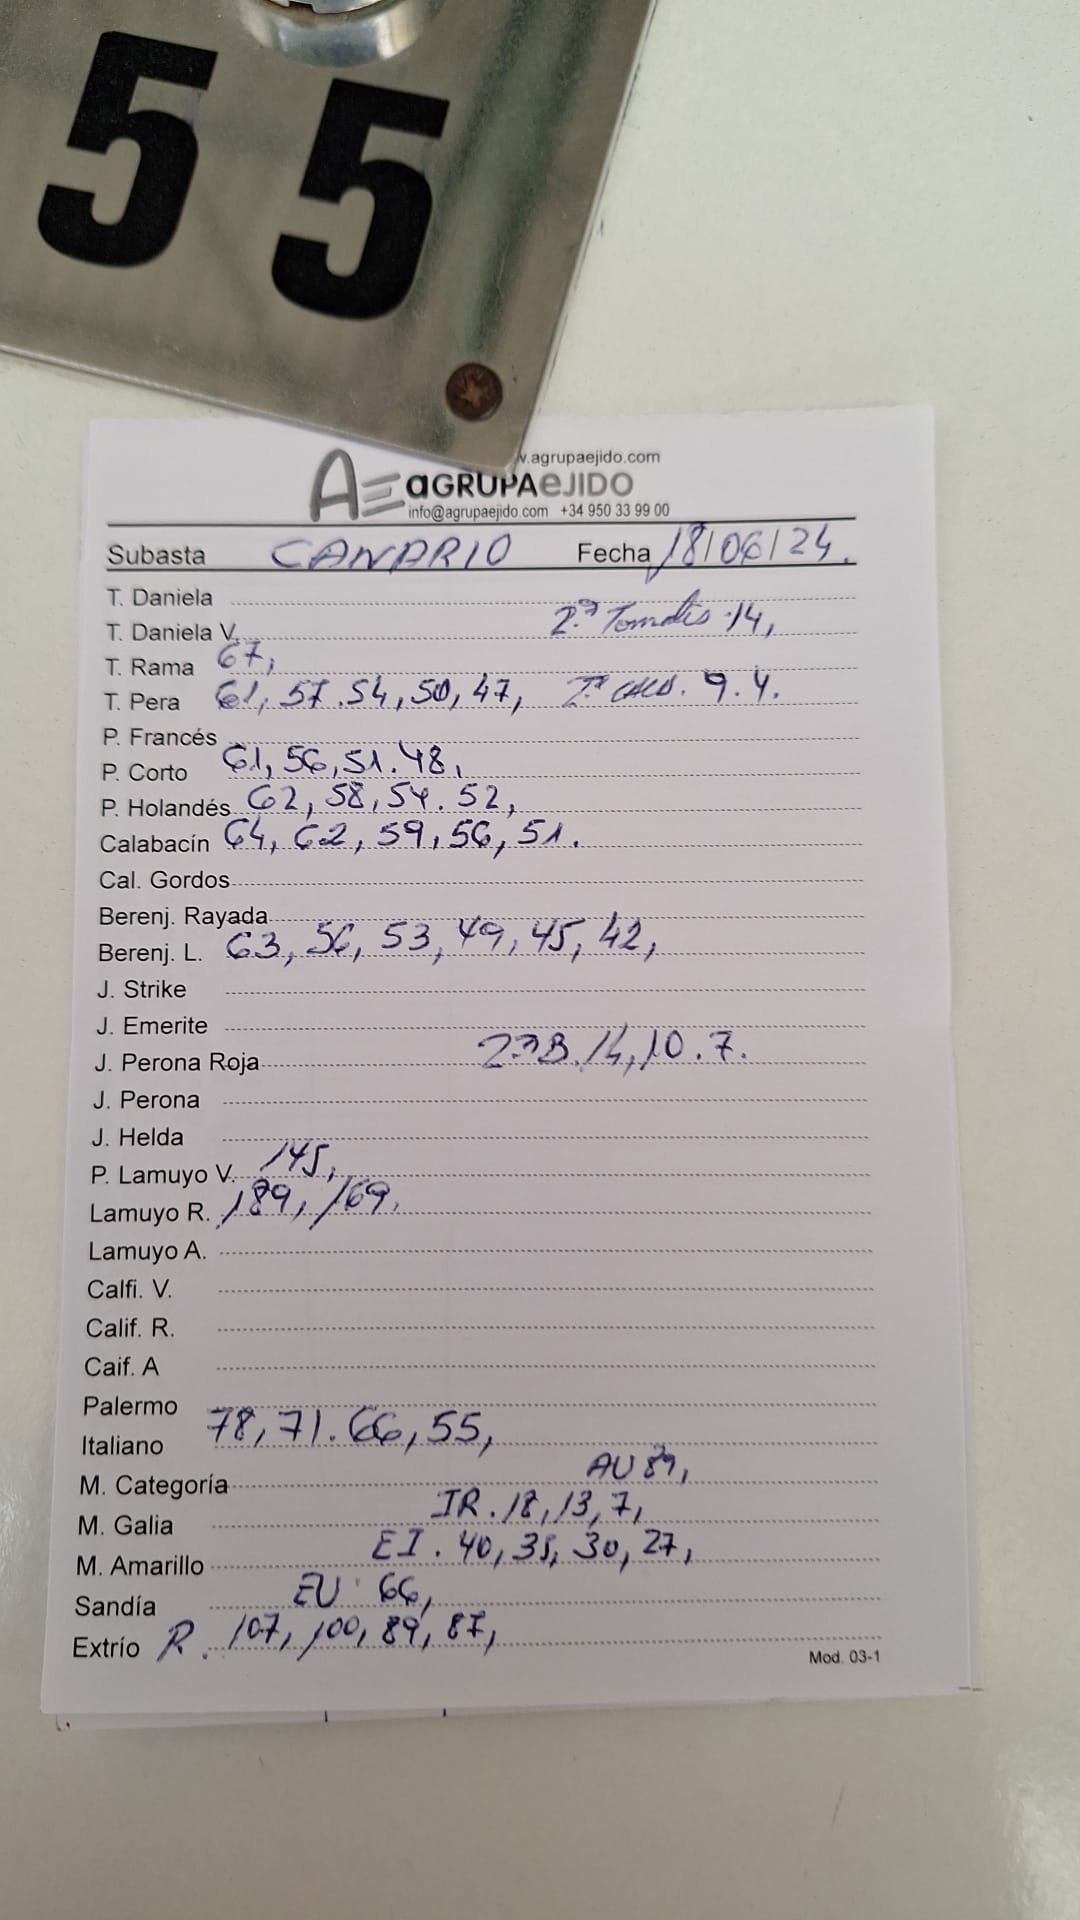 55
v.agrupaejido.com
AE aGRUPAeJIDO
info@agrupaejido.com +34 950 33 99 00
Subasta CANARIO Fecha 18/06/24.
T. Daniela
T. Daniela V. 2ª Tomates 14,
T. Rama 67,
T. Pera 61, 57. 54, 50, 47, 2ª 9. 4.
P. Francés
P. Corto 61, 56, 51. 48,
P. Holandés 62, 58, 54. 52,
Calabacín 64, 62, 59, 56, 51.
Cal. Gordos
Berenj. Rayada
Berenj. L. 63, 56, 53, 49, 45, 42,
J. Strike
J. Emerite
J. Perona Roja 2ª B. 14, 10. 7.
J. Perona
J. Helda
P. Lamuyo V. 145,
Lamuyo R. 189, 169,
Lamuyo A.
Calfi. V.
Calif. R.
Caif. A
Palermo
Italiano 78, 71. 66, 55,
M. Categoría AU 89,
M. Galia IR. 18, 13, 7,
M. Amarillo EI. 40, 35, 30, 27,
Sandía EU 66,
Extrío R. 107, 100, 89, 87,
Mod. 03-1